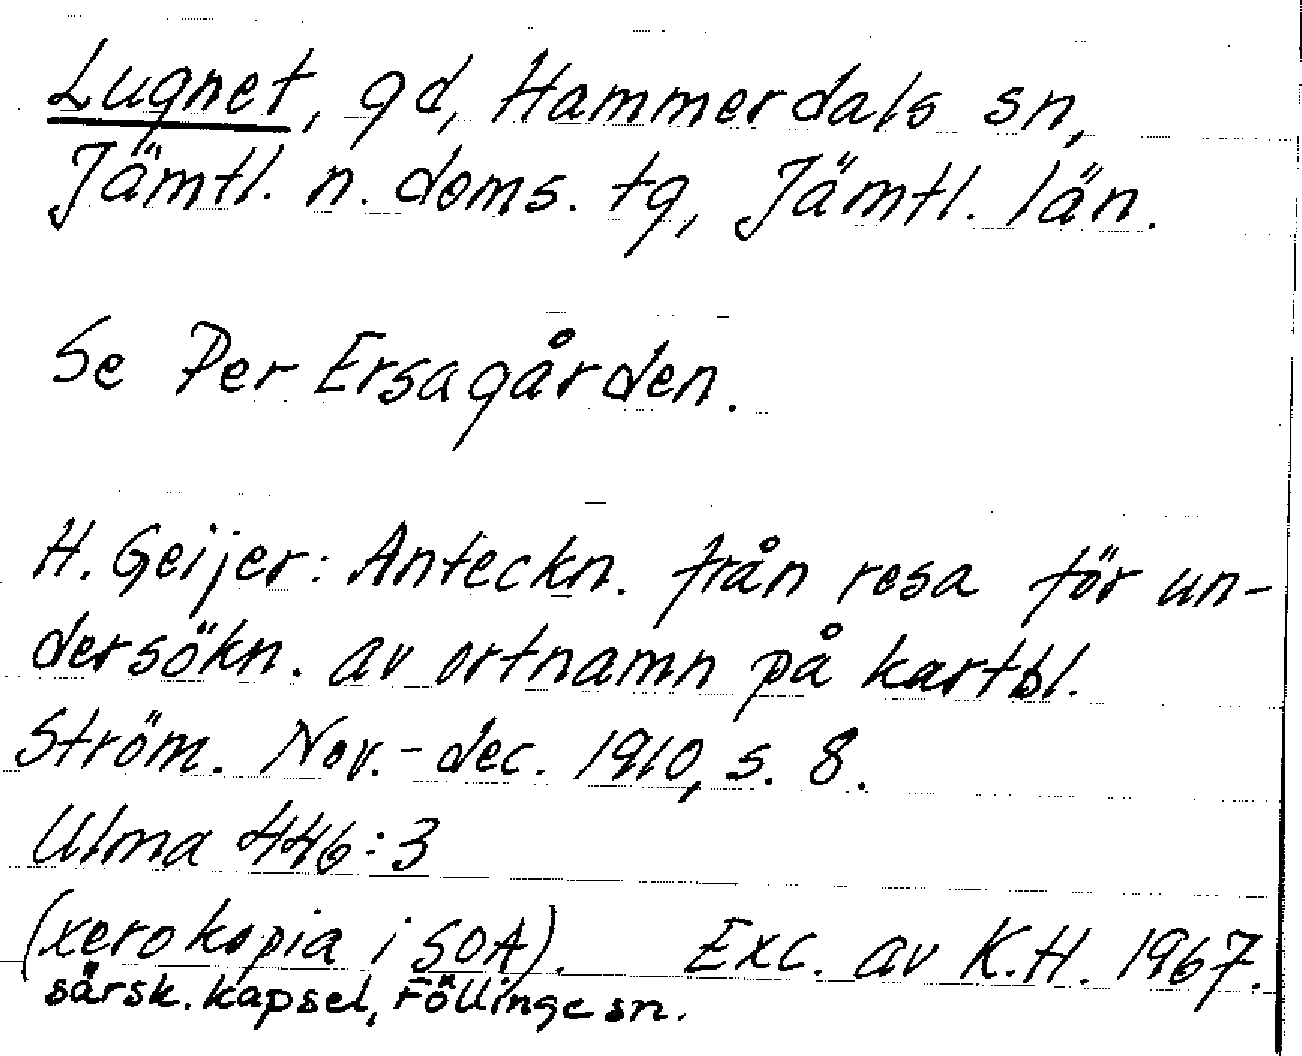 Lugnet, gd, Hammerdals sn,
Jämtl. n. doms. tg, Jämtl. län.
Se Per Ersagården.
H. Geijer: Anteckn. från resa för un-
dersökn. av ortnamn på kartbl.
Ström. Nov.-dec. 1910, s. 8.
Ulma 446:3
(xerokopia i SOA). Exc. av K.H. 1967.
särsk. kapsel, Föllinge sn.